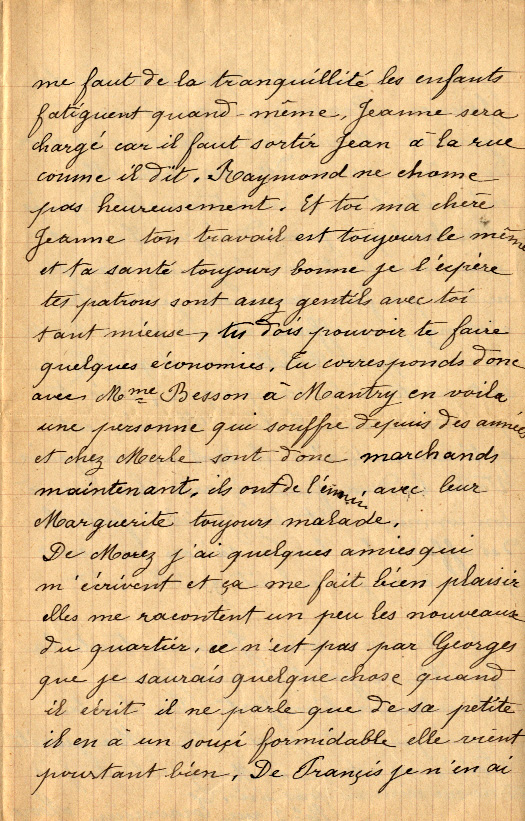 me faut de la tranquillité les enfants
fatiguent quand-même, Jeanne sera
chargé car il faut sortir Jean à la rue
comme il dit. Raymond ne chome
pas heureusement. Et toi ma chère
Jeanne ton travail est toujours le même
et ta santé toujours bonne je l'éspère
tes patrons sont assez gentils avec toi
tant mieuse, tu dois pouvoir te faire
quelques économies. Tu corresponds donc
avec Mme Besson à Mantry en voila
une personne qui souffre depuis des années
et chez Merle sont donc marchands
maintenant. ils ont de l'énnui avec leur
Marguerite toujours malade.
De Morez j'ai quelques amies qui
m'écrivent et ça me fait bien plaisir
elles me racontent un peu les nouveaux
du quartier. ce n'est pas par Georges
que je saurais quelque chose quand
il écrit il ne parle que de sa petite
il en à un souçi formidable elle vient
pourtant bien. De Françis je n'en ai